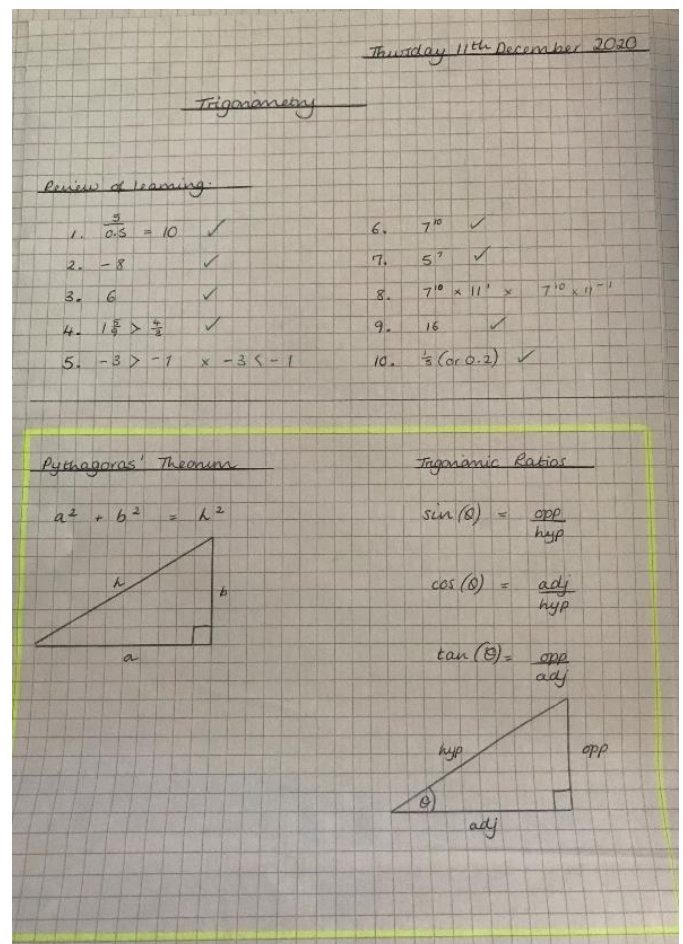 Thursday 11th December 2020
Trigonometry
Review of learning:
1. 5/0.5 = 10 ✓
2. -8 ✓
3. 6 ✓
4. 1 5/9 > 4/3 ✓
5. -3 > -1 x -3 < -1
6. 7¹⁰ ✓
7. 5⁷ ✓
8. 7¹⁰ × 11¹ x 7¹⁰ × 11⁻¹
9. 16 ✓
10. 1/5 (or 0.2) ✓
Pythagoras' Theorum
a² + b² = h²
h
b
a
Trigonomic Ratios
sin(θ) = opp/hyp
cos(θ) = adj/hyp
tan(θ) = opp/adj
hyp
opp
θ
adj